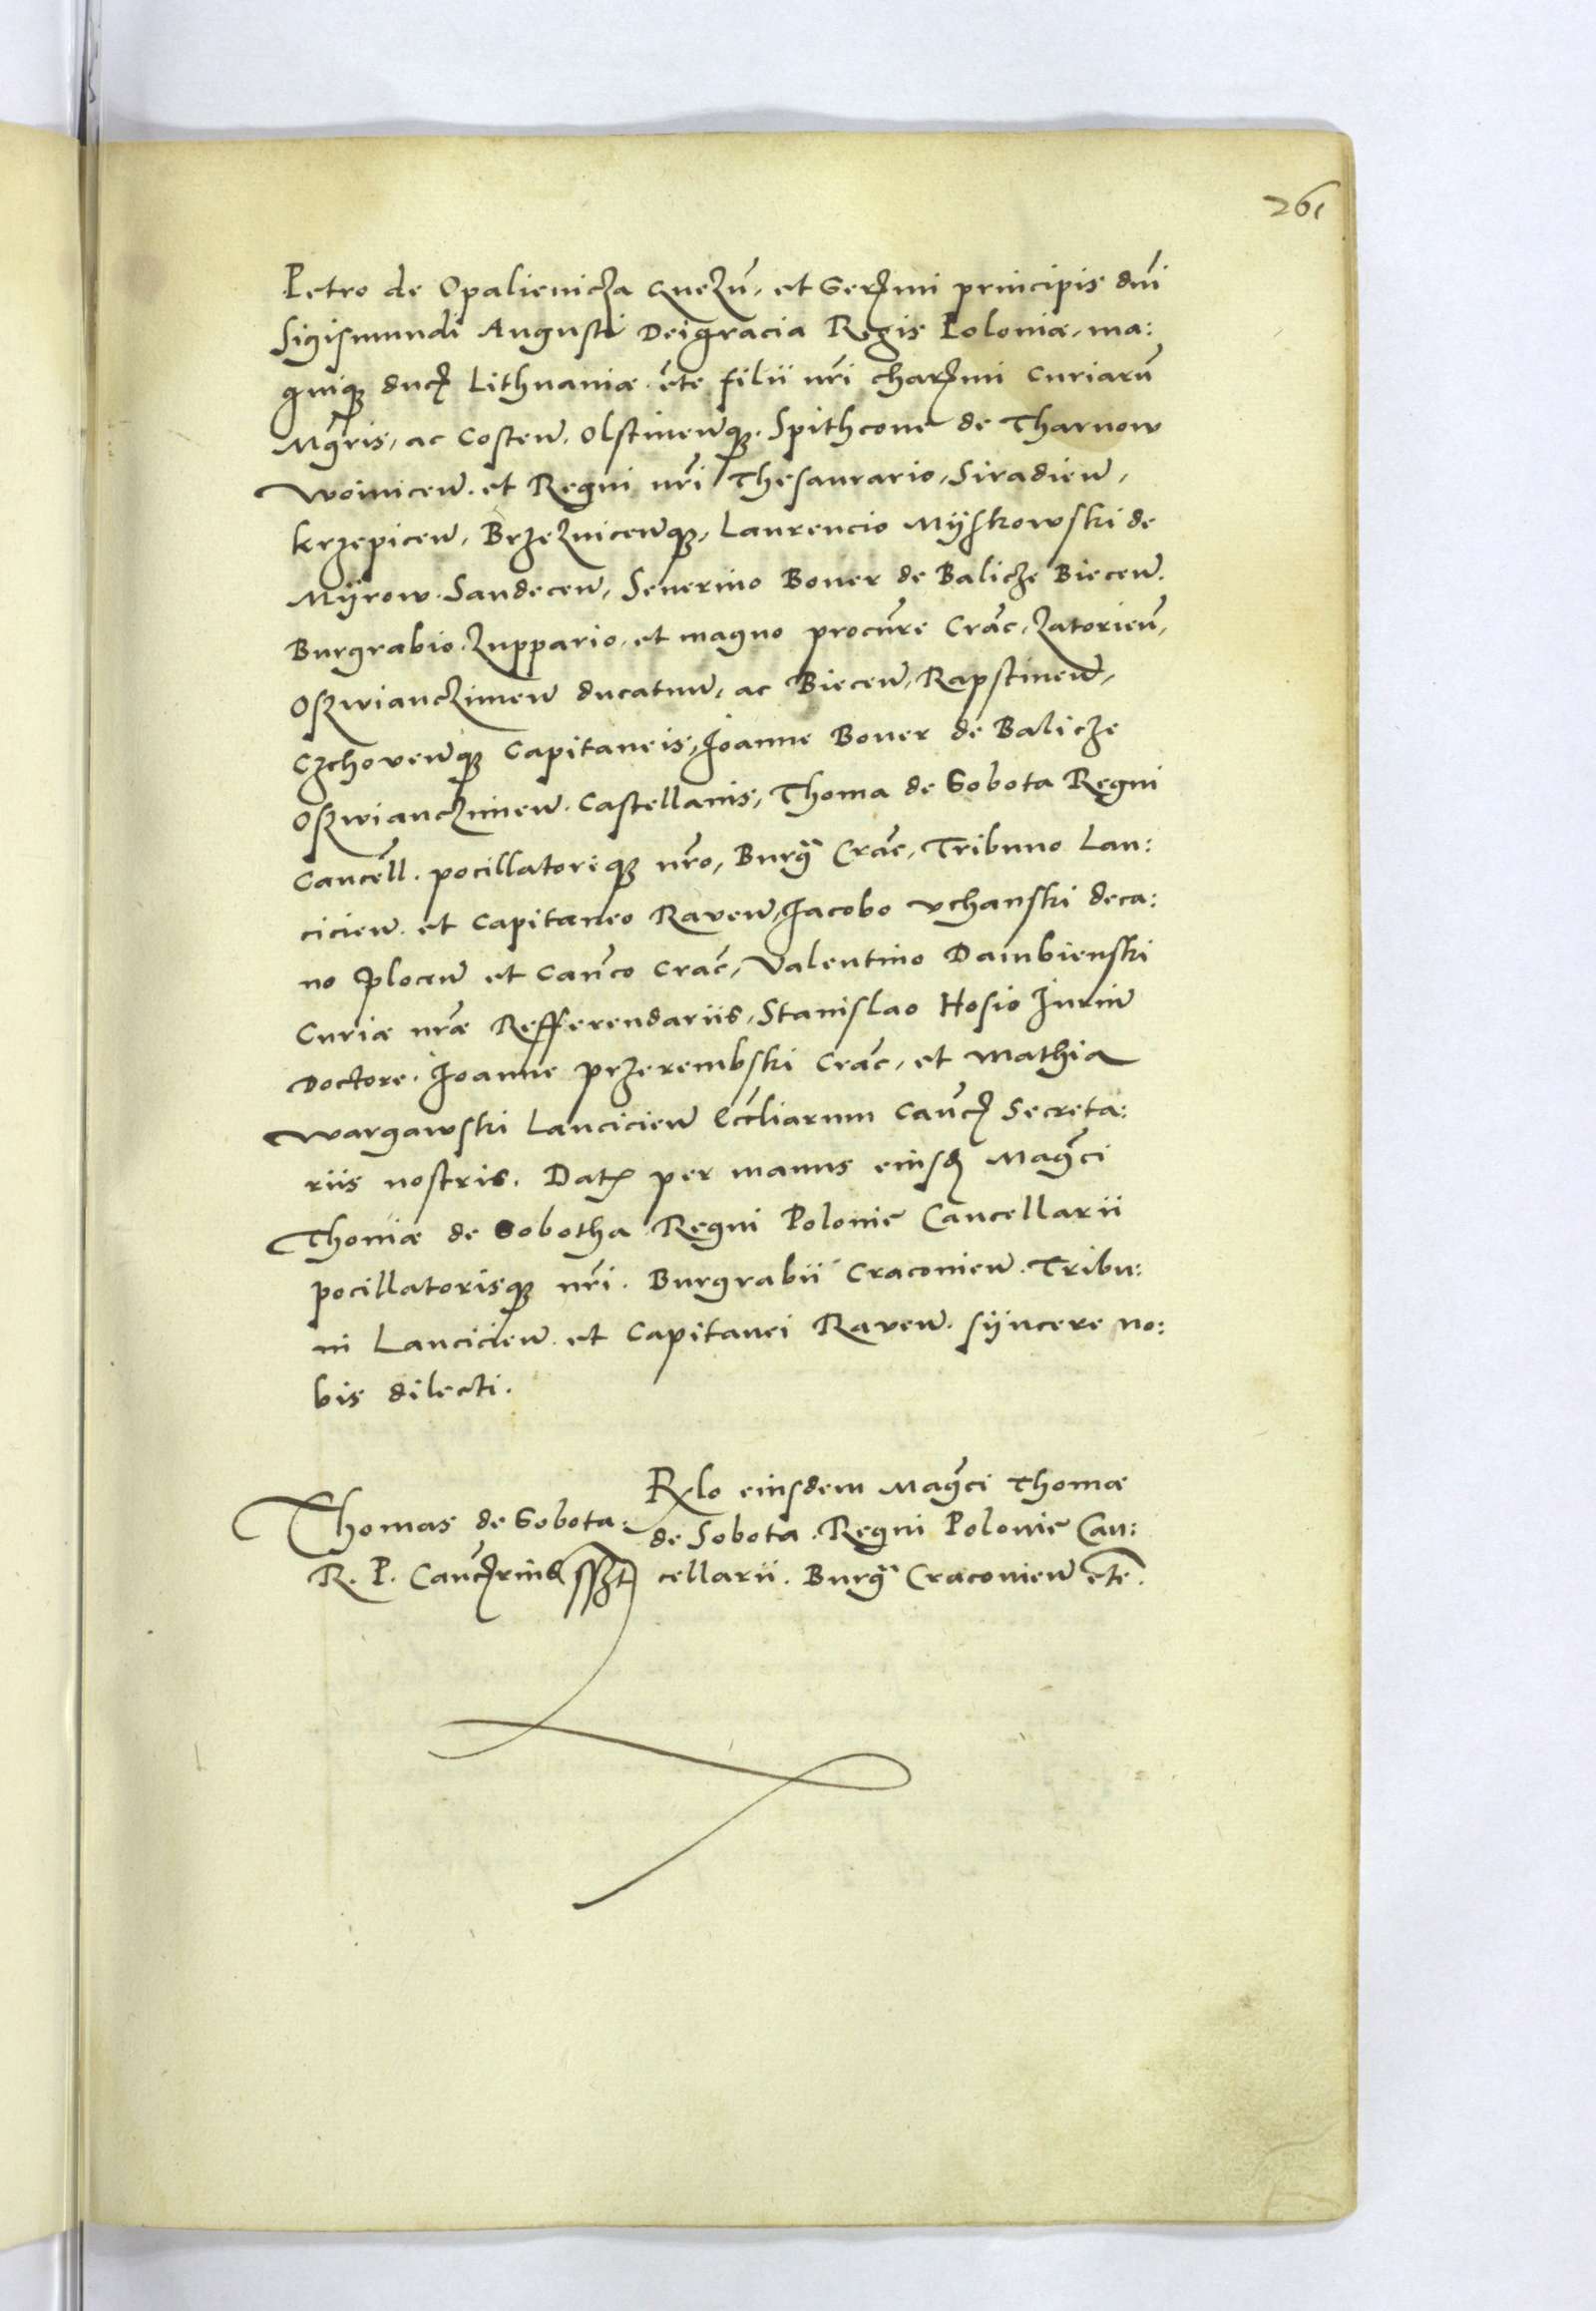 261
Petro de Opalienicza Gnezn̄, et Ser̄mi principis dn̄i
Sigismundi Augusti Dei gracia Regis Poloniæ, ma:
gniqꝫ ducꝭ Lithuaniæ etc̄ filii nr̄i char̄mi Curiarū
Mgr̄is, ac Costen̄. Olstinen̄qꝫ. Spithcone de Tharnow
Woinicen̄. et Regni nr̄i Thesaurario, Siradien̄,
Krzepicen̄, Brzeznicen̄qꝫ, Laurencio Mÿskowski de
Mÿrow. Sandecen̄, Severino Boner de Balicze Biecen̄.
Burgrabio. Zuppario, et magno procūre Crac̄, Zatorien̄,
Osswianczimen̄ ducatuum, ac Biecen̄, Rapstinen̄,
Czchoven̄qꝫ Capitaneis, Joanne Boner de Balicze
Osswianczimen̄. Castellanis, Thoma de Sobota Regni
Cancell̄. pocillatoreqꝫ nr̄o, Burgᵃ Crac̄, Tribuno Lan:
cicien̄. et Capitaneo Raven̄, Jacobo Vchanski deca:
no Plocen̄ et Can̄co Crac̄, Valentino Dambienski
Curiæ nr̄æ Refferendariis, Stanislao Hosio Jurium
Doctore. Joanne Przerembski Crac̄, et Mathia
Wargawski Lancicien̄ Eccl̄iarum Can̄cꝭ Secreta:
riis nostris. Datꝭ per manus eiusdꝭ Mag̅ci
Thomæ de Sobotha Regni Polonię Cancellarii
pocillatorisqꝫ nr̄i. Burgrabii Cracovien̄. Tribu:
ni Lancicien̄. et Capitanei Raven̄. sÿncere no:
bis dilecti.
Rlo eiusdem Mag̅ci Thomæ
Thomas de Sobota:
de Sobota. Regni Polonię Can:
R. P. Can̄cꝭrius sszt
cellarii. Burgᵃ Cracovien̄ etc̄.